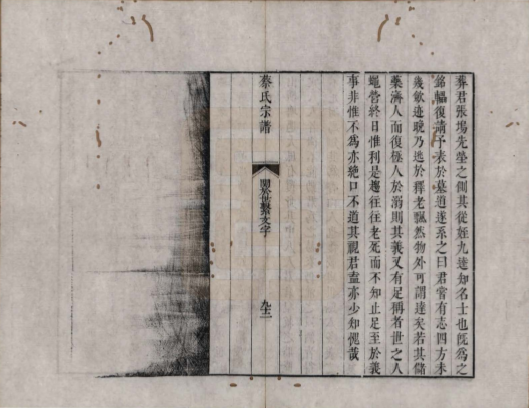 葬君張塢先塋之側其從姪九達知名士也旣為之
銘幅復請予表於墓道遂系之曰君嘗有志四方未
幾斂迹晚乃逃於釋老飄然物外可謂達矣若其儲
藥濟人而復極人於溺則其義又有足稱者世之人
蠅營終日惟利是趨往往老死而不知止足至於義
事非惟不為亦絕口不道其視君盍亦少知愧哉
秦氏宗譜
關於世繫文字